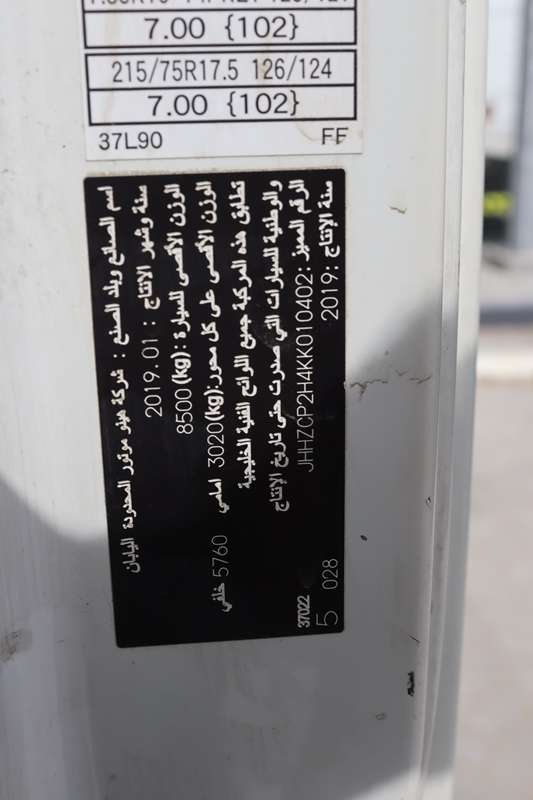 7.00 {102}
215/75R17.5 126/124
7.00 {102}
37L90 FF
اسم المصنع وبلد الصنع : شركة هينو موتورز المحدودة اليابان
سنة وشهر الانتاج : 2019.01
الوزن الأقصى للسيارة : 8500(kg)
الوزن الأقصى على كل محور:3020(kg) امامي 5760 خلفي
تطابق هذه المركبة جميع اللوائح الفنية الخليجية
والوطنية للسيارات التي صدرت حتى تاريخ الإنتاج
الرقم المميز: JHHZCP2H4KK010402
سنة الإنتاج: 2019
37022
5 028